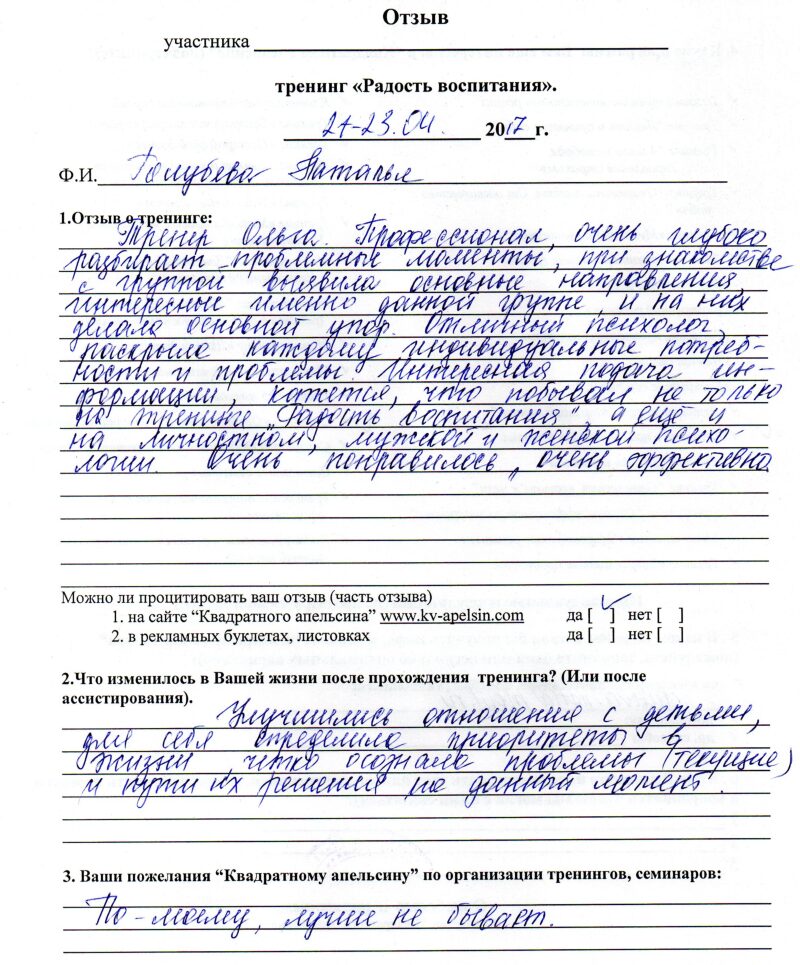 Отзыв
участника
тренинг «Радость воспитания».
21-23.04. 2017 г.
Ф.И. Голубева Наталья
1.Отзыв о тренинге:
Тренер Ольга. Профессионал, очень глубоко
разбирает проблемные моменты, при знакомстве
с группой выявила основные направления,
интересные именно данной группе и на них
делала основной упор. Отличный психолог,
раскрыла каждому индивидуальные потреб-
ности и проблемы. Интересная подача ин-
формации, кажется, что побывал не только
на тренинге „Радость воспитания", а ещё и
на личностном, мужской и женской психо-
логии. Очень понравилось, очень эффективно
Можно ли процитировать ваш отзыв (часть отзыва)
1. на сайте “Квадратного апельсина” www.kv-apelsin.com да [ ✓ ] нет [ ]
2. в рекламных буклетах, листовках да [ ] нет [ ]
2.Что изменилось в Вашей жизни после прохождения тренинга? (Или после
ассистирования).
Улучшились отношения с детьми,
для себя определила приоритеты в
жизни, четко осознала проблемы (текущие)
и пути их решения на данный момент.
3. Ваши пожелания “Квадратному апельсину” по организации тренингов, семинаров:
По-моему, лучше не бывает.